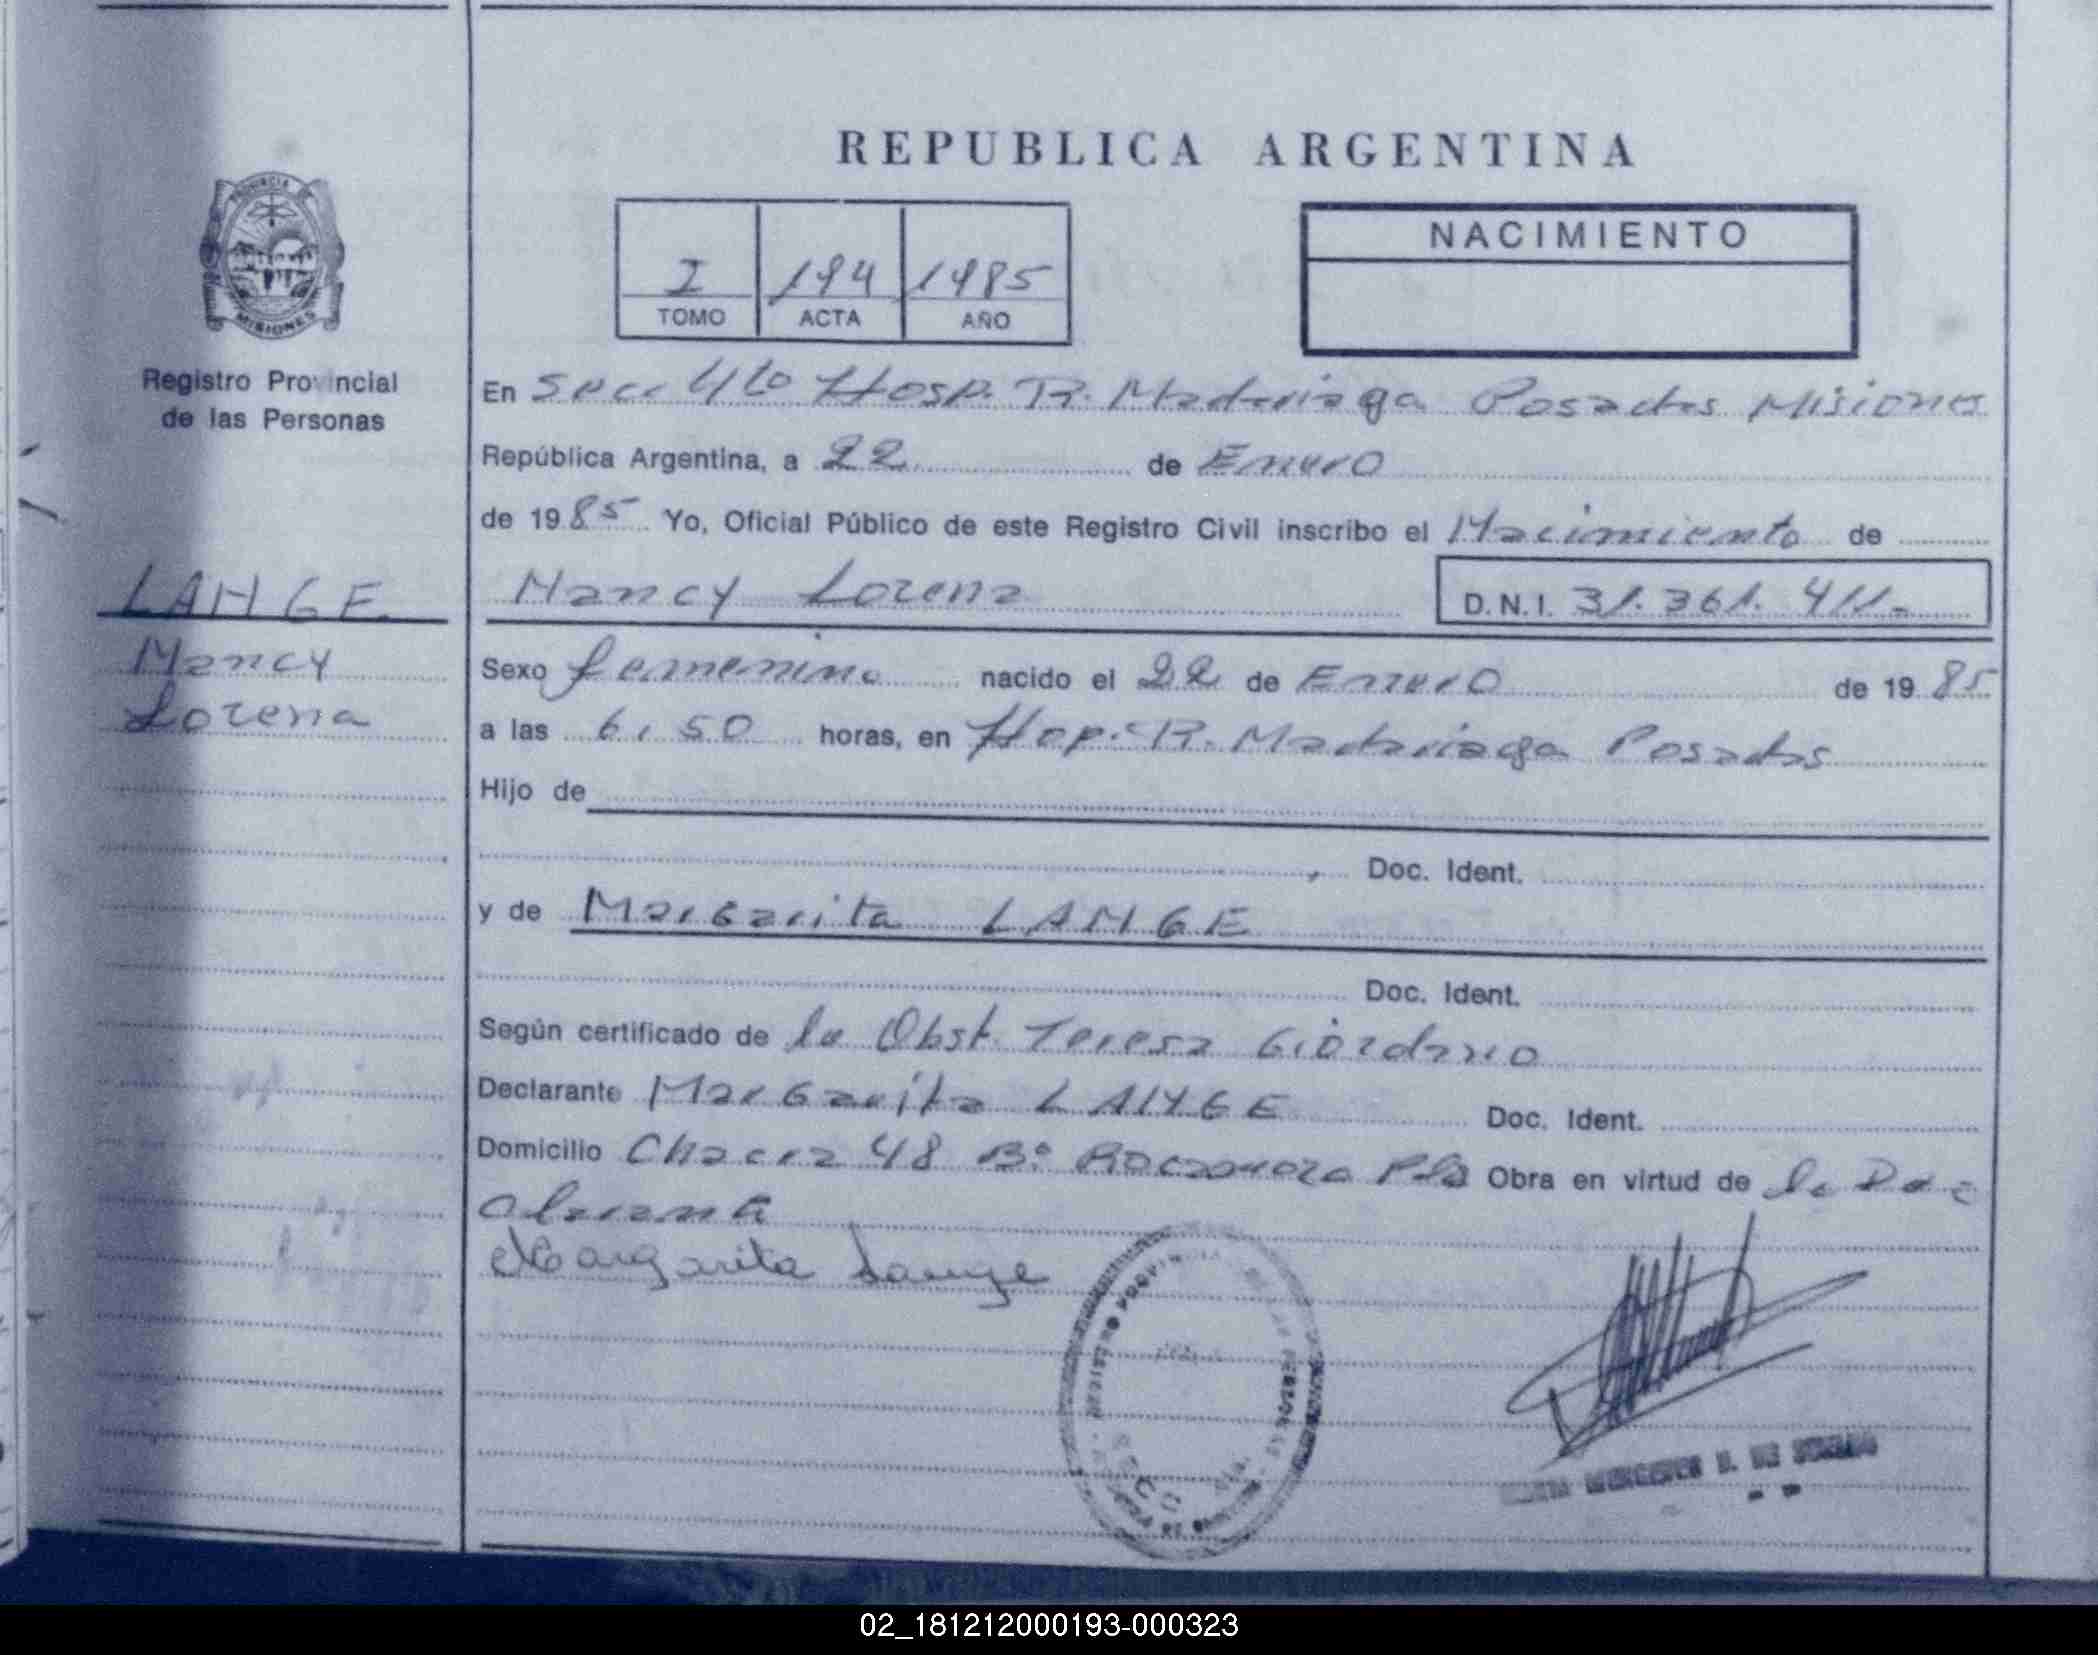 REPUBLICA ARGENTINA
PROVINCIA
MISIONES
Registro Provincial
de las Personas
I 194 1985
TOMO ACTA AÑO
NACIMIENTO
En Secc 4ta Hosp. R. Madariaga Posadas Misiones
República Argentina, a 22 de Enero
de 1985 Yo, Oficial Público de este Registro Civil inscribo el Nacimiento de
LANGE
Nancy Lorena
D.N.I. 31.361.411.-
Nancy
Lorena
Sexo femenino nacido el 22 de Enero de 1985
a las 6,50 horas, en Hop. R. Madariaga Posadas
Hijo de
Doc. Ident.
y de Margarita LANGE
Doc. Ident.
Según certificado de la Obst. Teresa Giordano
Declarante Margarita LANGE Doc. Ident.
Domicilio Chacra 48 B° Pdas Obra en virtud de la De
Margarita Lange
MERCEDES DE
02_181212000193-000323